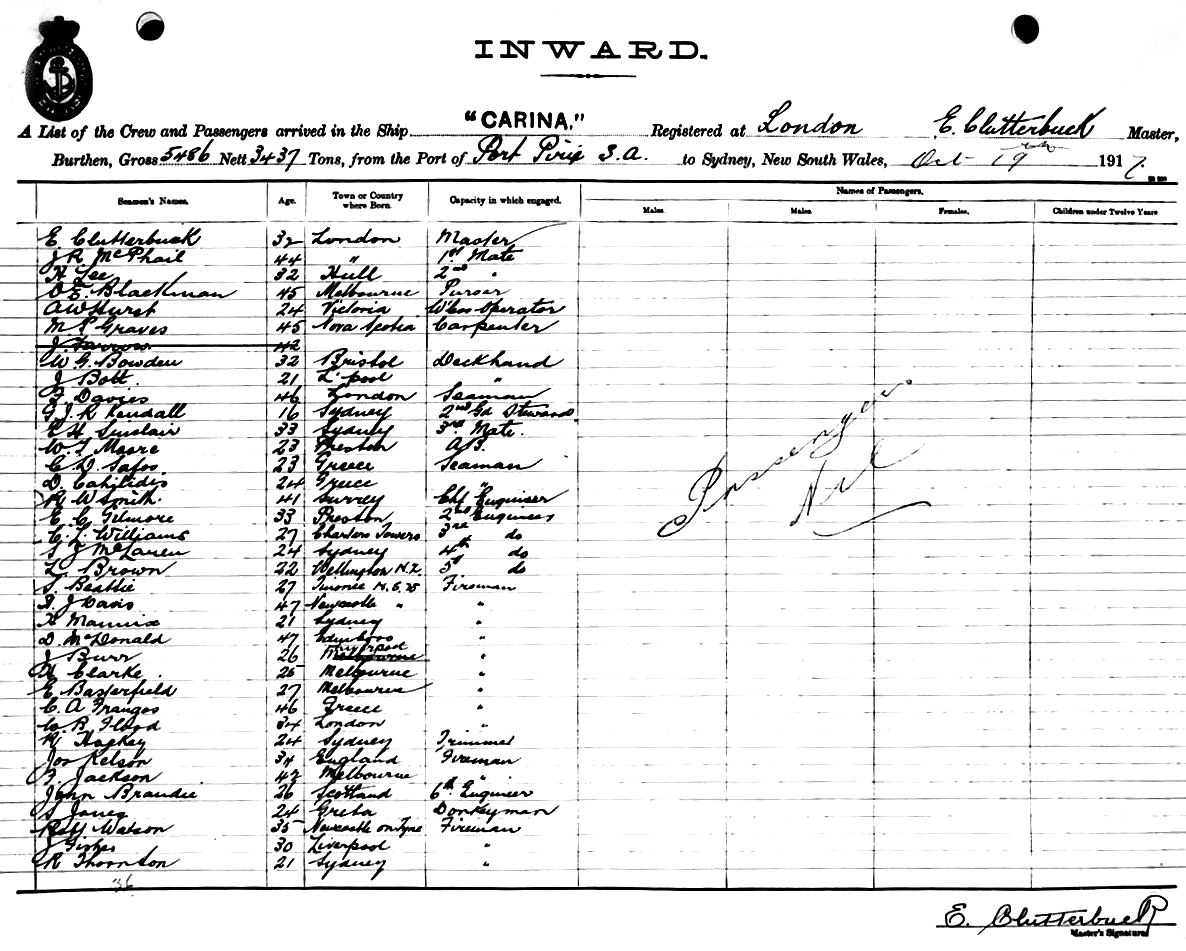 INWARD.
A List of the Crew and Passengers arrived in the Ship "CARINA." Registered at London E. Clutterbuck Master,
Burthen, Gross 5486 Nett 3437 Tons, from the Port of Port Pirie S.A. to Sydney, New South Wales, Oct 19th 1917.
Names of Passengers.
Seamen's Names. Age. Town or Country where Born. Capacity in which engaged. Males. Males. Females. Children under Twelve Years
E Clutterbuck 32 London Master
J R McPhail 44 " 1st Mate
H Lee 32 Hull 2nd "
O E. Blackman 45 Melbourne Purser
A W Hurst 24 Victoria W'less Operator
M Graves 45 Nova Scotia Carpenter
J. Farrow 42
W G. Bowden 32 Bristol Deckhand
J Bott 21 L'pool "
Davies 46 London Seaman
G J. R Kendall 16 Sydney 2nd Gd Steward
E H Sinclair 33 Sydney 3rd Mate.
W. J Moore 23 Preston A.B.
C D. Safos 23 Greece Seaman
D. 24 Greece "
R W Smith. 41 Surrey Chf Engineer
E. C. Gilmore 33 Preston 2nd Engineer
C. L. Williams 27 Charters Towers 3rd do
S J McLaren 24 Sydney 4th do
L. Brown 22 Wellington N.Z. 5th do
S. Beattie 27 N.S.W Fireman
J Davis 47 Newcastle " "
H Mannix 21 Sydney "
D. McDonald 47 Edinboro "
J Burr 26 Liverpool Melbourne "
H Clarke. 25 Melbourne "
E Basterfield 27 Melbourne "
C. A Frangos 46 Greece "
B Flood 34 London "
R Hockey 24 Sydney Trimmer
Jos Kelson 34 England Fireman
F. Jackson 42 Melbourne "
John Brandie 26 Scotland 6th Engineer
S Jones 24 Greta Donkeyman
Robt Watson 35 Newcastle on Tyne Fireman
J 30 Liverpool "
R Thornton 21 Sydney "
36
Passengers
Nil
E. Clutterbuck
Master's Signature